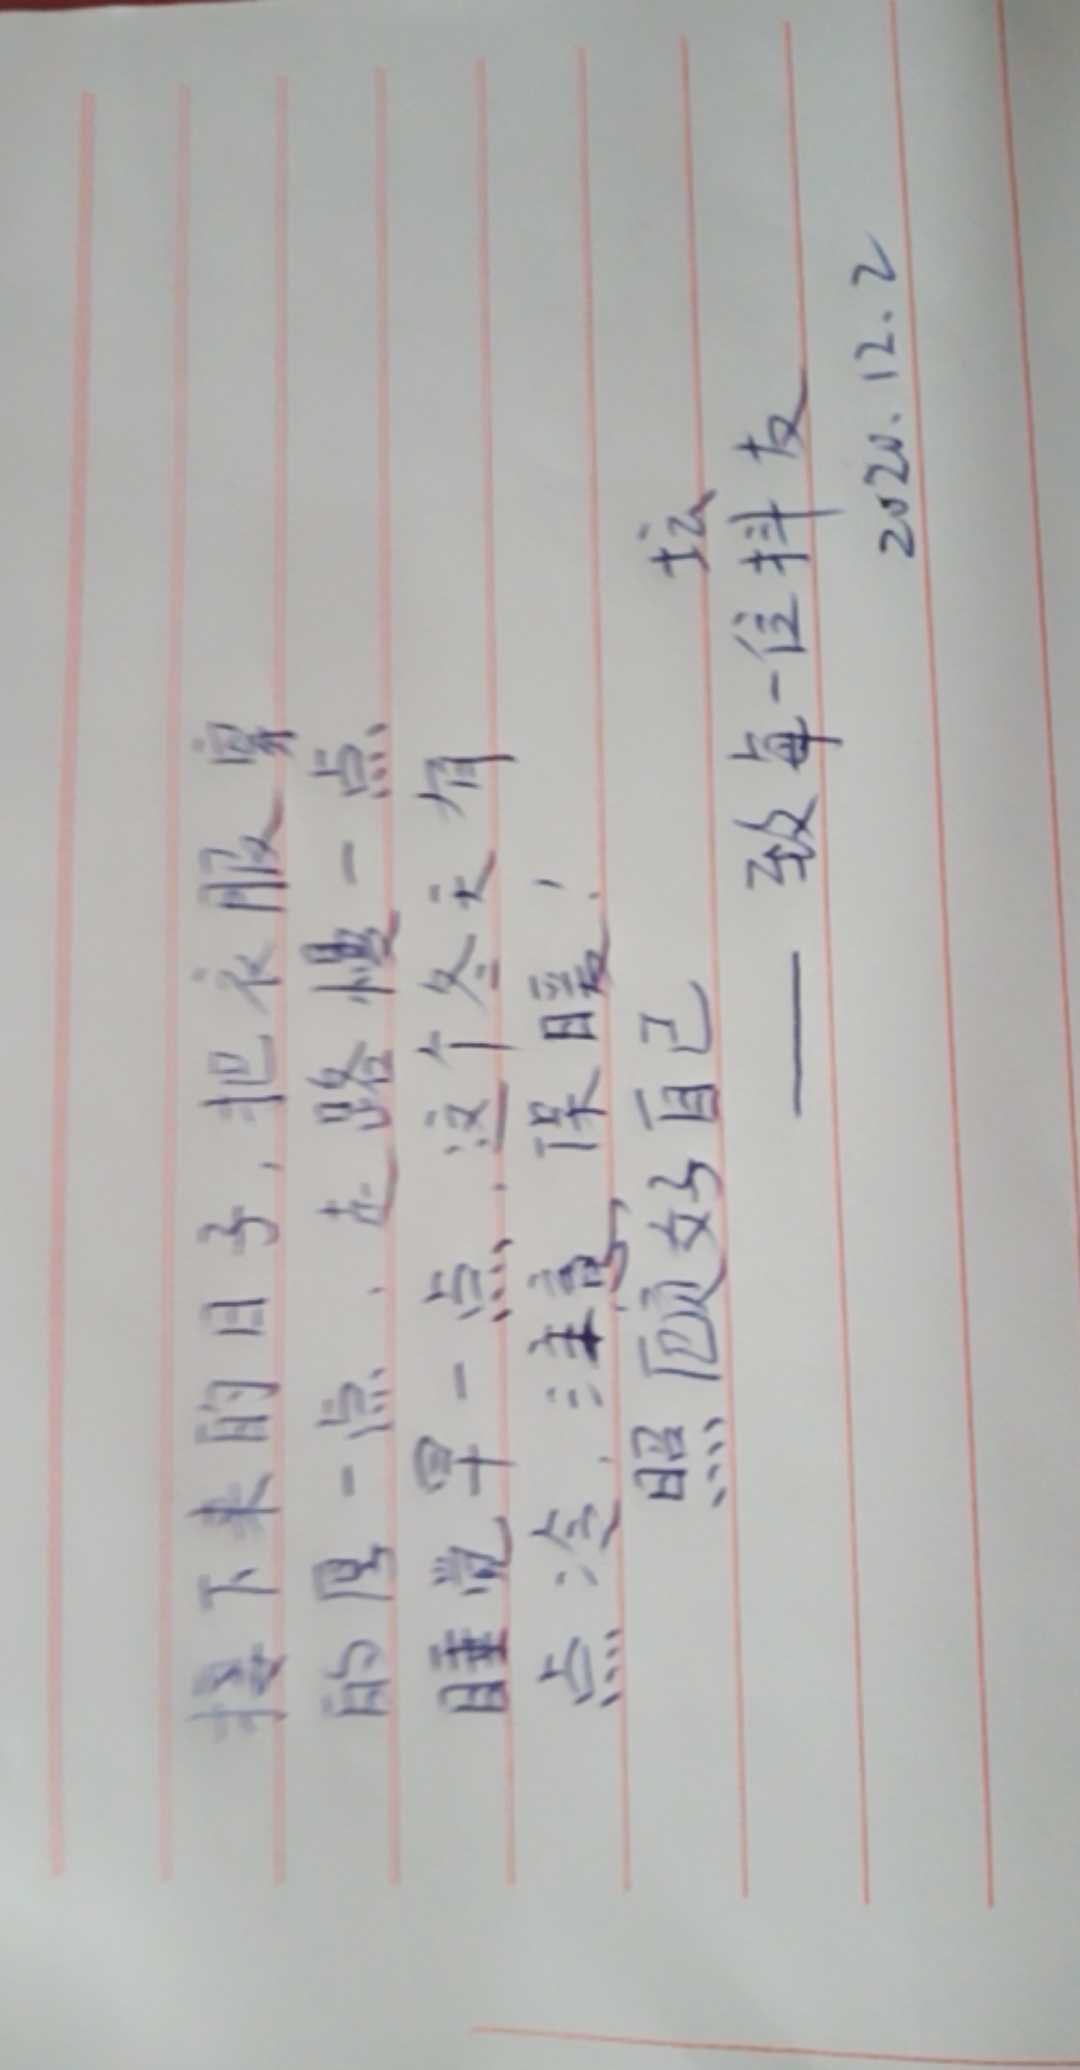 接下来的日子,把衣服穿
的厚一点、走路慢一点
睡觉早一点、这个冬天有
点冷、注意保暖,
照顾好自己
坛
——致每一位抖友
2020.12.2